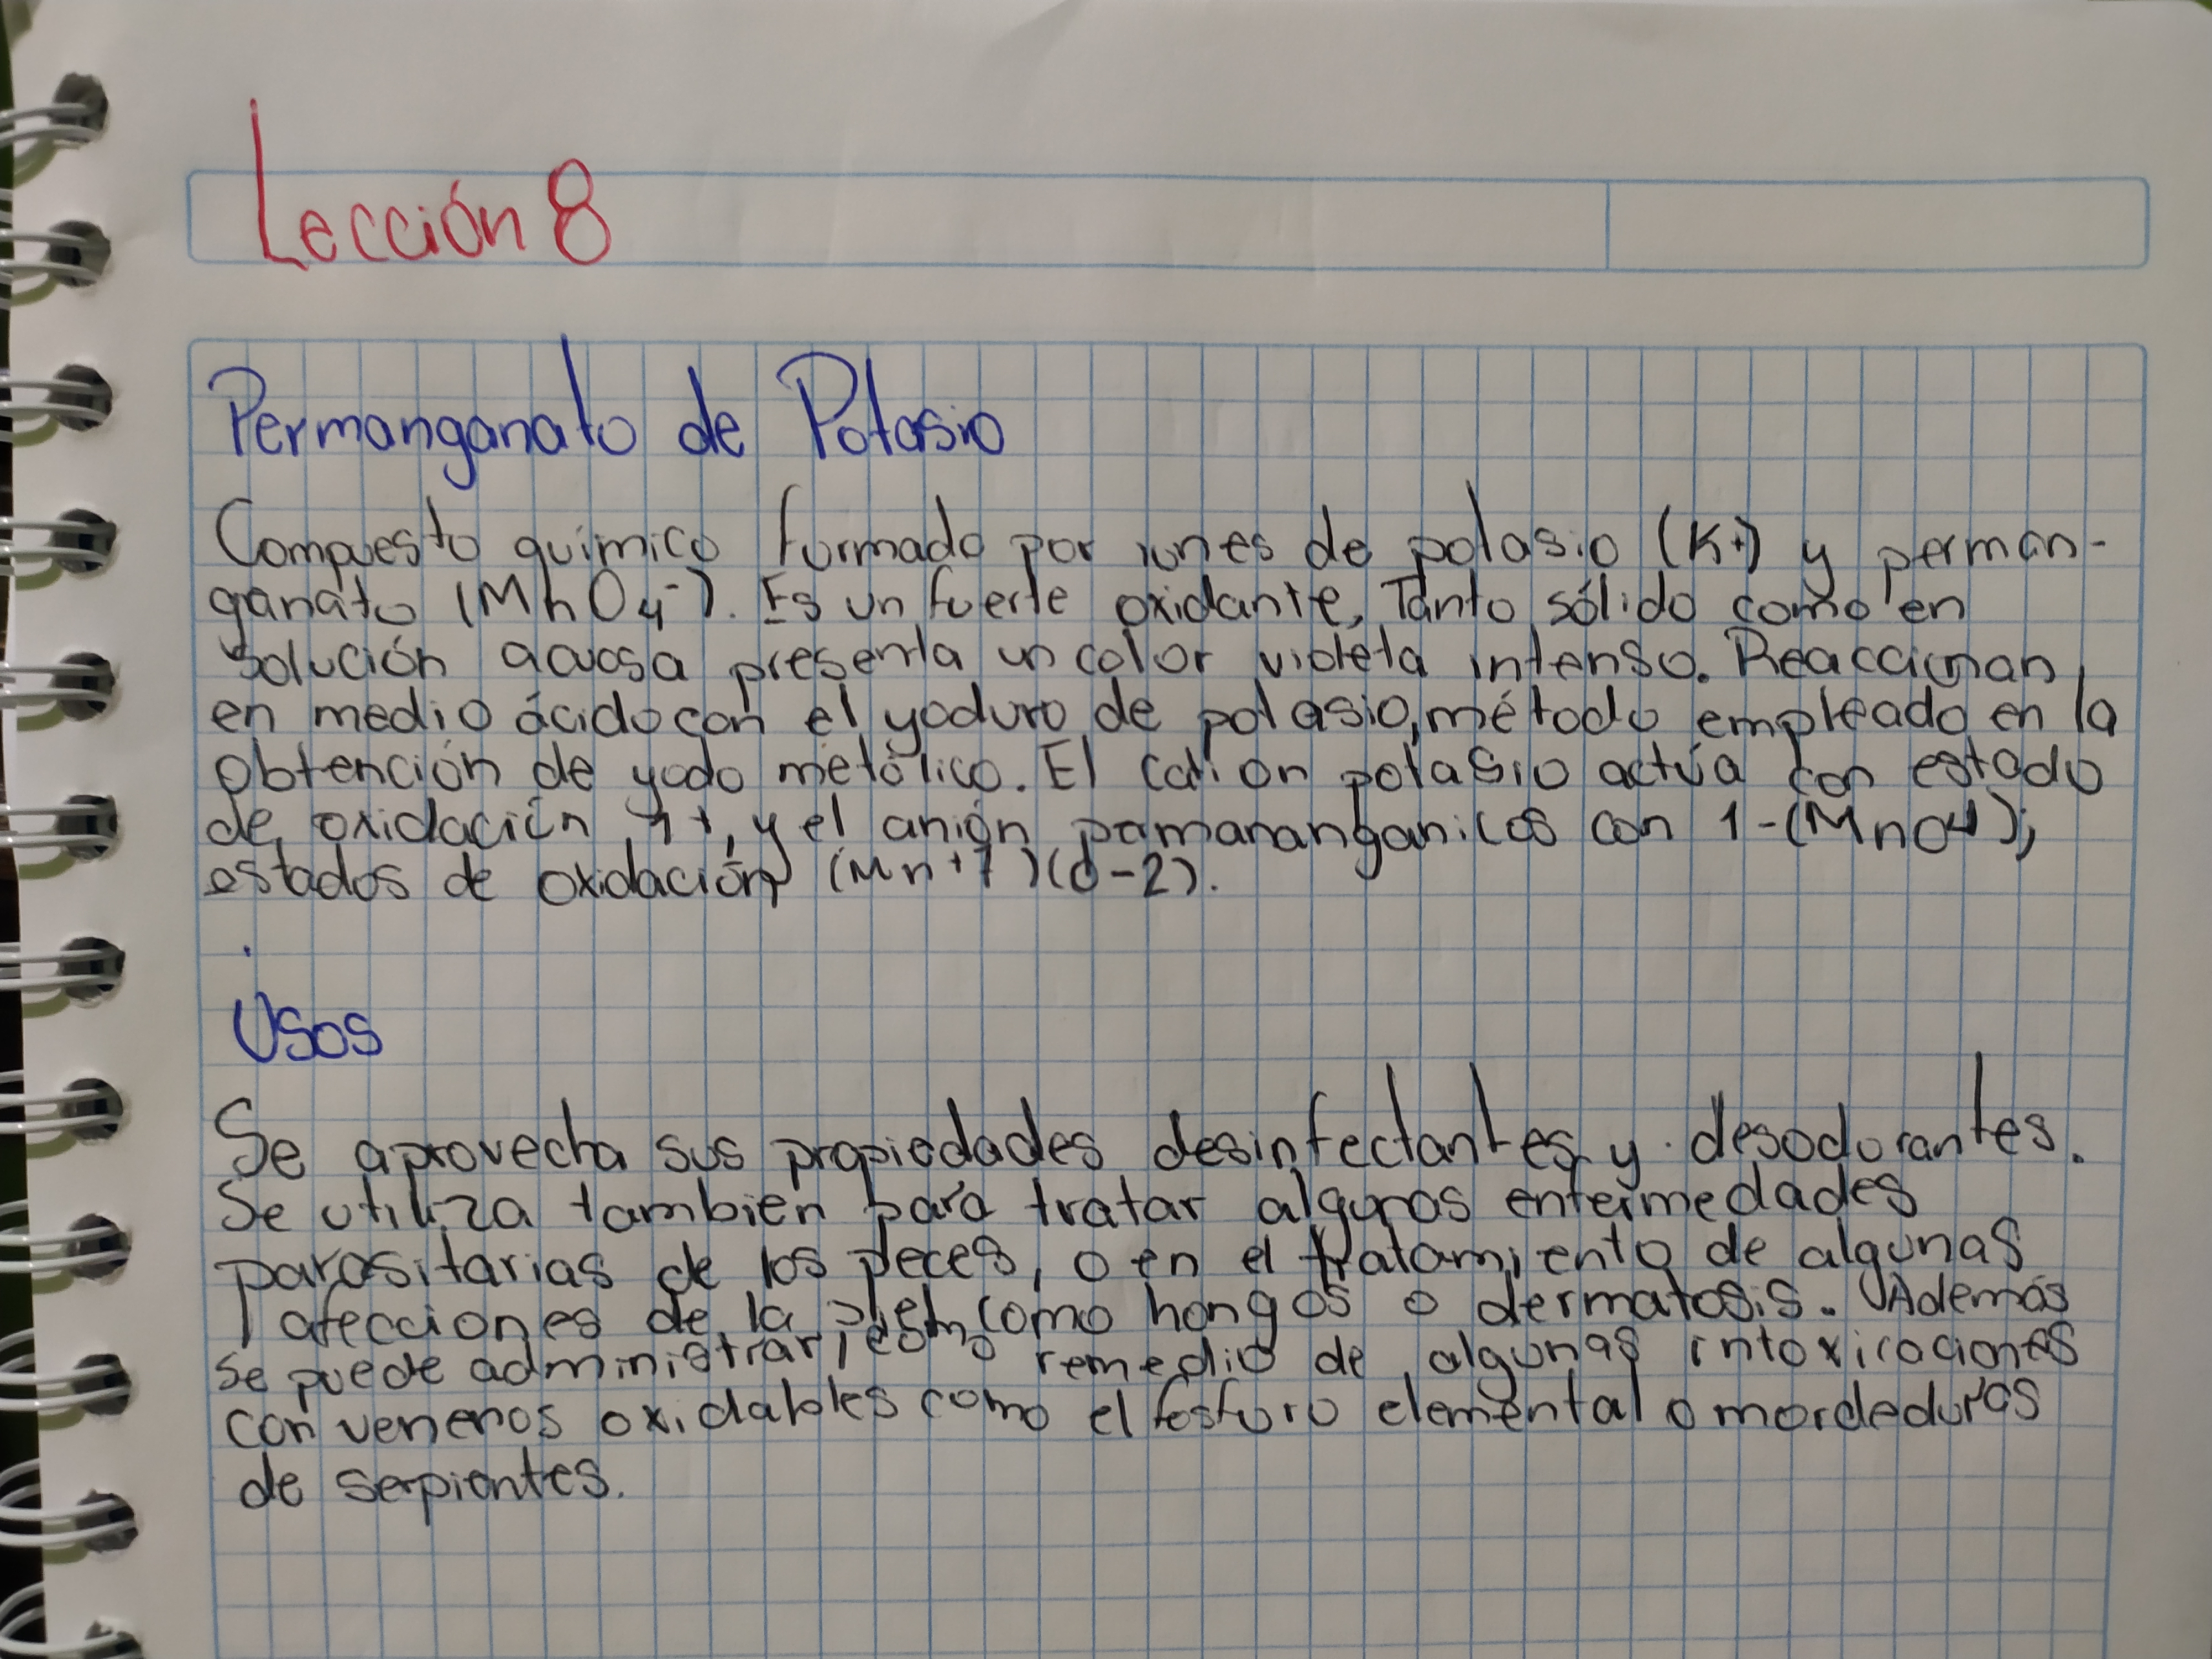 Lección 8
Permanganato de Potasio
Compuesto químico formado por iones de potasio (K+) y perman-
ganato (MnO4⁻). Es un fuerte oxidante, Tanto sólido como en
solución acuosa presenta un color violeta intenso. Reaccionan
en medio ácido con el yoduro de potasio, método empleado en la
obtención de yodo metálico. El cation potasio actúa con estado
de oxidación 1+, y el anión pamananganicos con 1-(MnO4);
estados de oxidación (Mn+7)(O-2).
.
Usos
Se aprovecha sus propiedades desinfectantes y desodorantes.
Se utiliza tambien para tratar algunas enfermedades
parasitarias de los peces, o en el tratamiento de algunas
afecciones de la piel como hongos o dermatosis. Además
se puede administrar, como remedio de algunas intoxicaciones
con venenos oxidables como el fosforo elemental o mordeduras
de serpientes.